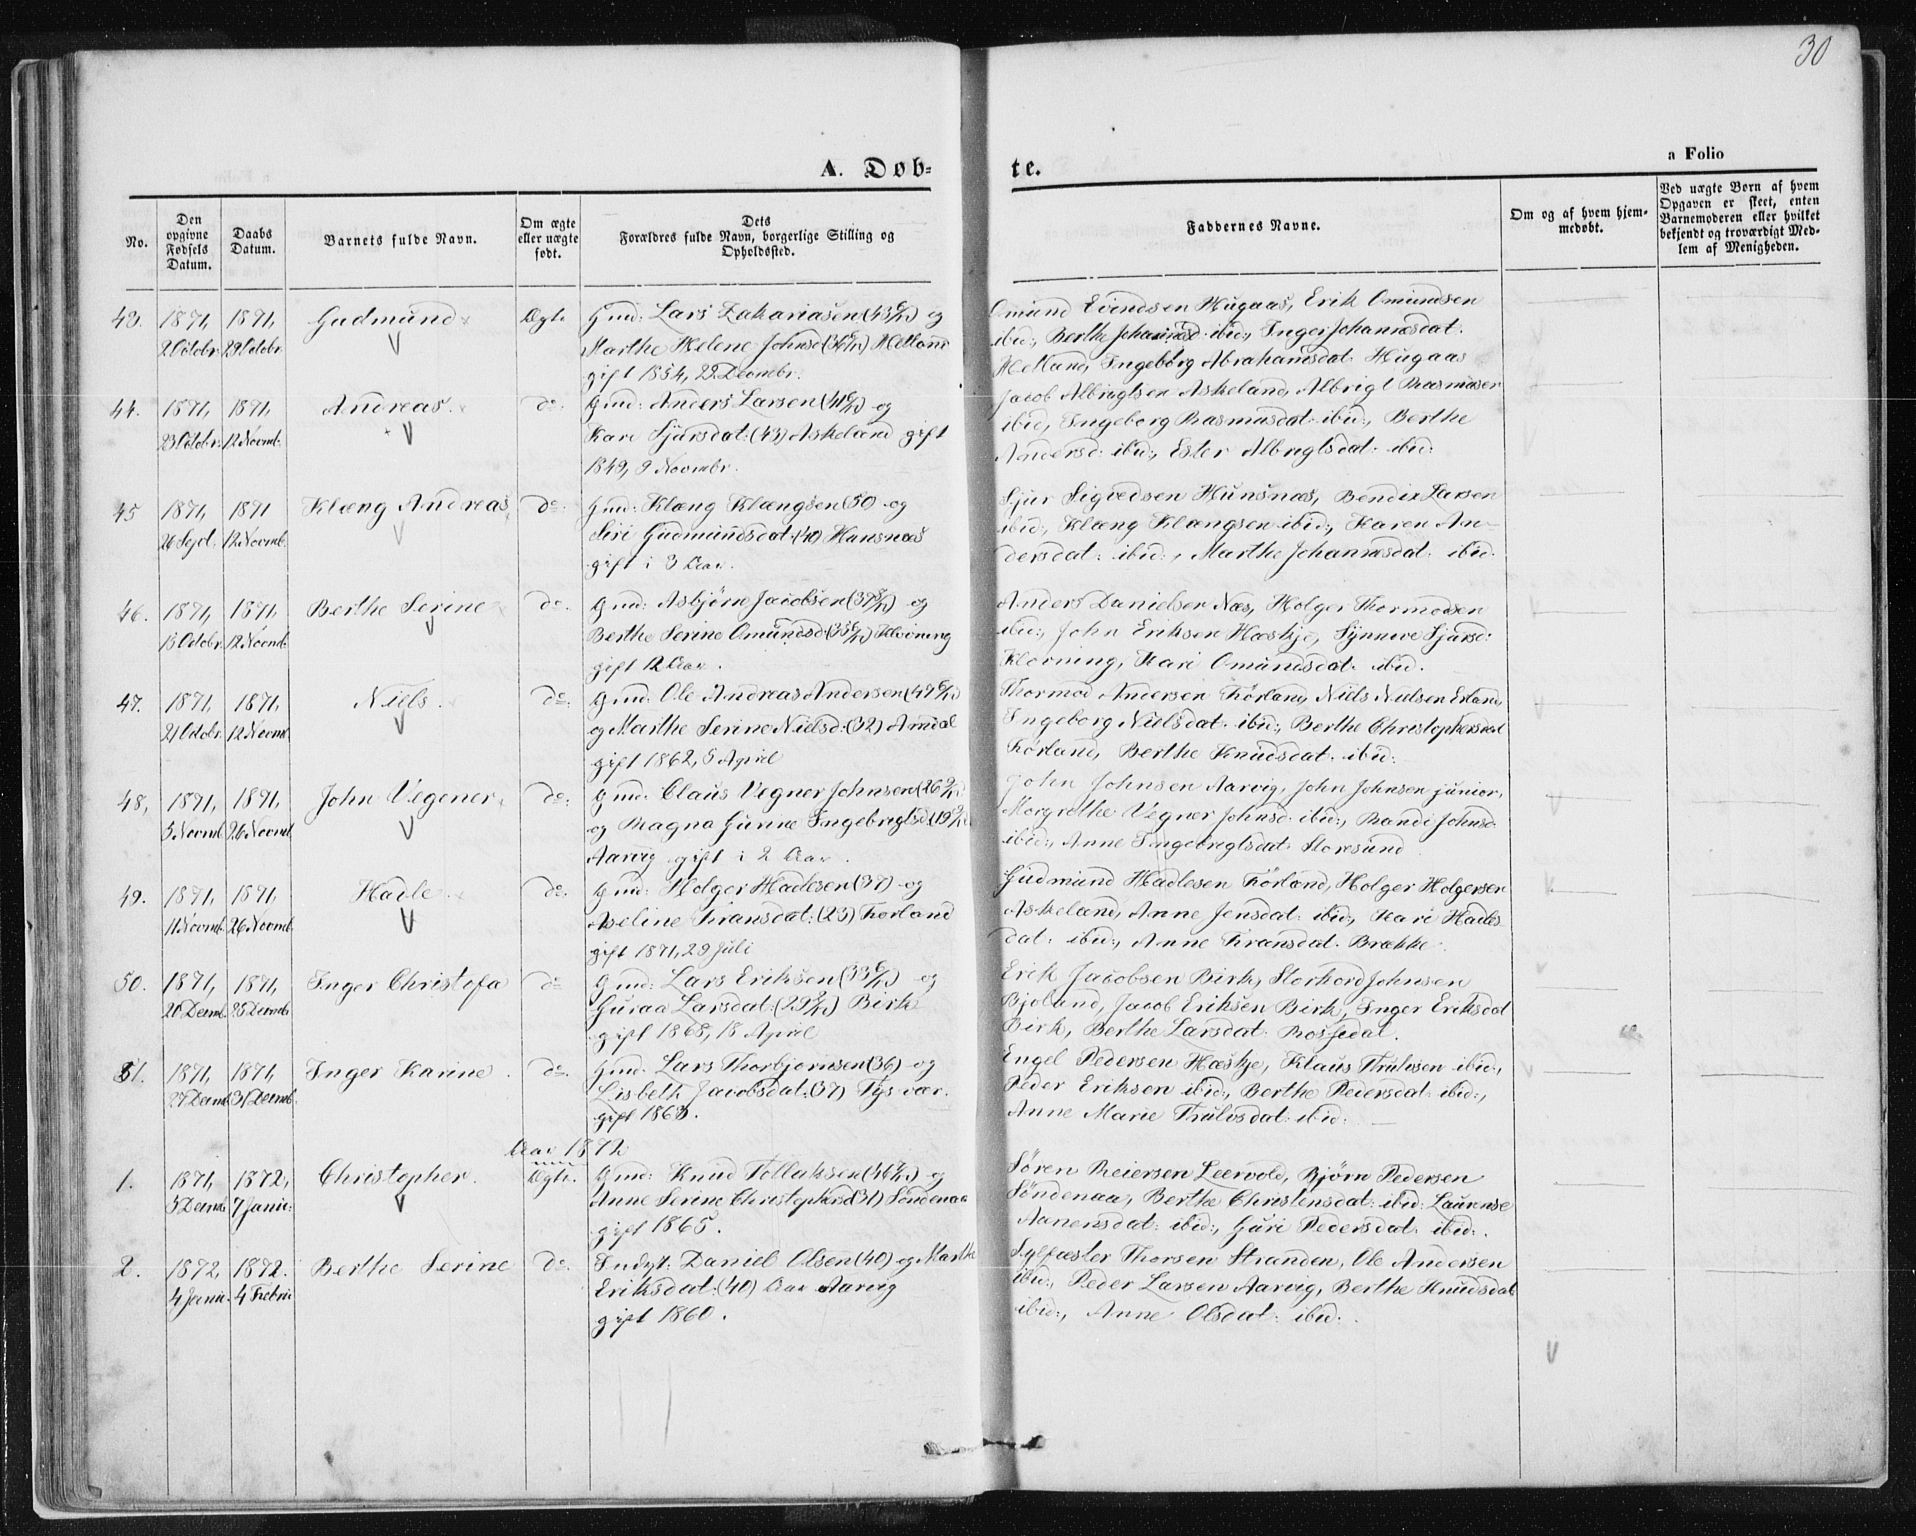 30
A. Døb-
te.
a Folio
No.
Den opgivne Fødsels Datum.
Daabs Datum.
Barnets fulde Navn.
Om ægte eller uægte født.
Dets Forældres fulde Navn, borgerlige Stilling og Opholdssted.
Faddernes Navne.
Om og af hvem hjem-
medøbt.
Ved uægte Børn af hvem
Opgaven er skeet, enten
Barnemoderen eller hvilket
bekjendt og troværdigt Med-
lem af Menigheden.
43. 1871, 1871, Gudmund Ægte Gmd: Lars Zakariasen og
2 Octobr. 29 Octobr. Marthe Helene Johnsd: Hetland
gift 1854, 29 Decmbr.
Omund Evindsen Hugaas, Erik Omundsen
ibid:, Berthe Johannesd: ibid:, Inger Johannesdat:
Hetland, Ingeborg Abrahamsdat: Hugaas
44. 1871, 1871, Andreas do. Gmd: Anders Larsen og
23 Octobr. 12 Novmb. Kari Sjursdat: (43) Askeland gift
1849, 9 Novmbr.
Jacob Albrigtsen Askeland, Albrigt Rasmusen
ibid, Ingeborg Rasmusdat: ibid:, Berthe
Andersd: ibid:, Ester Albrigtsdat: ibid:
45 1871, 1871 Klæng Andreas, do. Gmd: Klæng Klængsen (50 og
26 Sept. 12 Novmb. Siri Gudmundsdat: (40) Hunsnæs
gift i 3 Aar.
Sjur Sigvedsen Hunsnæs, Bendix Larsen
ibid:, Klæng Klængsen ibid:, Karen An-
dersdat: ibid:, Marthe Johannesdat: ibid.
46. 1871, 1871, Berthe Serine do. Gmd: Asbjørn Jacobsen og
13 Octobr. 12 Novmb. Berthe Serine Omundsd: Klovning
gift 12 Aar.
Anders Danielsen Næs, Holger Thormodsen
ibid:, John Eriksen Hæskje, Synneve Sjursd:
Klovning, Kari Omundsdat: ibid.
47. 1871, 1871, Niels. do. Gmd: Ole Andreas Andersen og
21 Octobr. 12 Novmb. Marthe Serine Nielsd: (32) Amdal
gift 1862, 5 April
Thormod Andersen Førland, Niels Nielsen Erland
Ingeborg Nielsdat: ibid:, Berthe Christophersdat
Førland, Berthe Knudsdat: ibid:
48, 1871, 1871, John Vegener do. Gmd: Claus Vegner Johnsen
5 Novmb. 26 Novmb. og Ragna Gunne Ingebrigtsd:
Aarvig gift i 2 Aar.
John Johnsen Aarvig, John Johnsen junior,
Morgrethe Vegner Johnsd: ibid:, Randi Johnsd:
ibid:, Anne Ingebrigtsdat: Storesund
49. 1871, 1871, Hadle do. Gmd: Holger Hadlesen (37) og
11 Novmb. 26 Novmb. Aseline Fransdat: (23) Førland
gift 1871, 29 Juli
Gudmund Hadlesen Førland, Holger Holgersen
Askeland, Anne Jensdat: ibid:, Kari Hadles
dat: ibid:, Anne Fransdat: Brække
50. 1871, 1871, Inger Christofa do Gmd: Lars Eriksen og
20 Decmb. 25 Decmb. Guraa Larsdat: Birk
gift 1868, 18 April
Erik Jacobsen Birk, Storkord Johnsen
Bjoland, Jacob Eriksen Birk, Inger Eriksdat
Birk, Berthe Larsdat: Rossedal.
51. 1871, 1871, Inger Karine do. Gmd: Lars Thorbjornsen (36) og
27 Decmb. 31 Decmb. Lisbeth Jacobsdat: (37) Tysvær.
gift 1863.
Engel Pedersen Hæskje, Klaus Trulosen ibid:,
Peder Eriksen ibid:, Berthe Pedersdat: ibid:,
Anne Marie Trulosdat: ibid:
Aar 1872
1. 1871, 1872, Christopher. Ægte. Gmd: Knud Tollaksen og
5 Decmb. 7 Janu: Anne Serine Christophersd: (31) Søndenaa
gift 1865.
Søren Reiersen Leervold, Bjørn Pedersen
Søndenaa, Berthe Christensdat: ibid: Laurense
Aanensdat: ibid:, Guri Pedersdat: ibid:.
2. 1872, 1872. Berthe Serine do. Indst: Daniel Olsen (40) og Marthe
4 Janu. 4 Febru Eriksdat: (40) Aar Aarvig
gift 1860.
Sylfæster Thorsen Stranden, Ole Andersen
ibid:, Peder Larsen Aarvig, Berthe Knudsdat
ibid:, Anne Olsdat: ibid:.